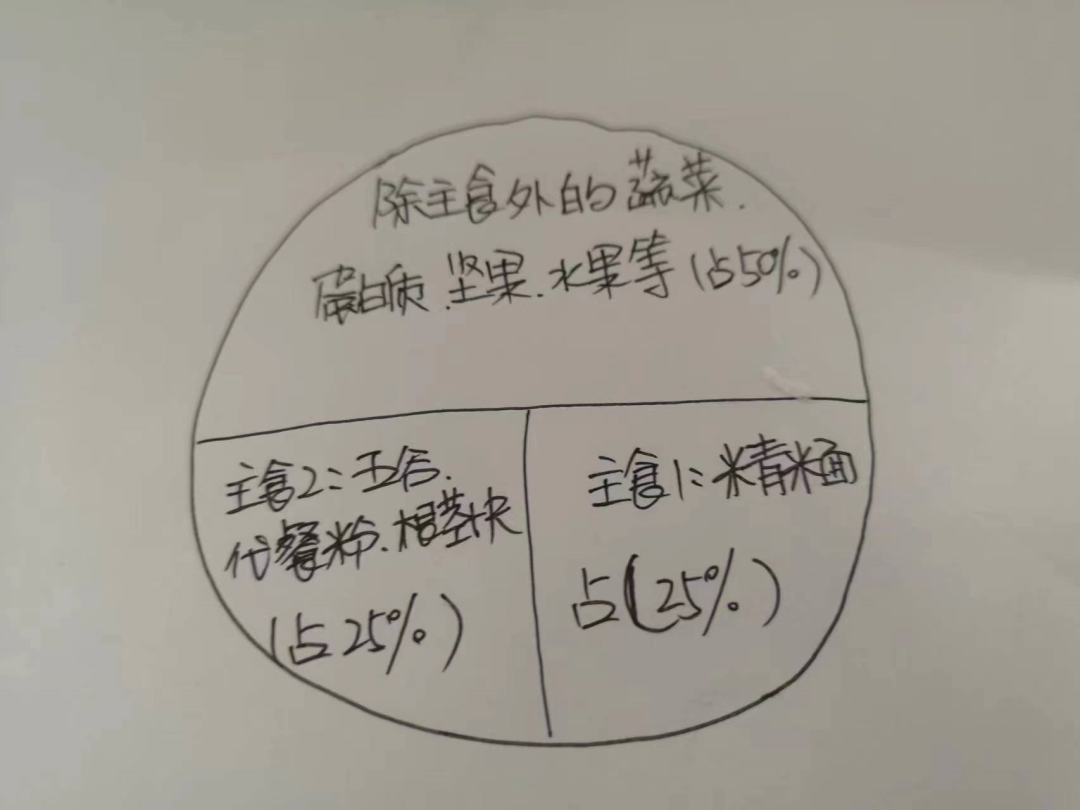 除主食外的蔬菜.
蛋白质.坚果.水果等(占50%)
主食2:五谷.
代餐粉.根茎块
(占25%)
主食1:米青米面
占(25%)